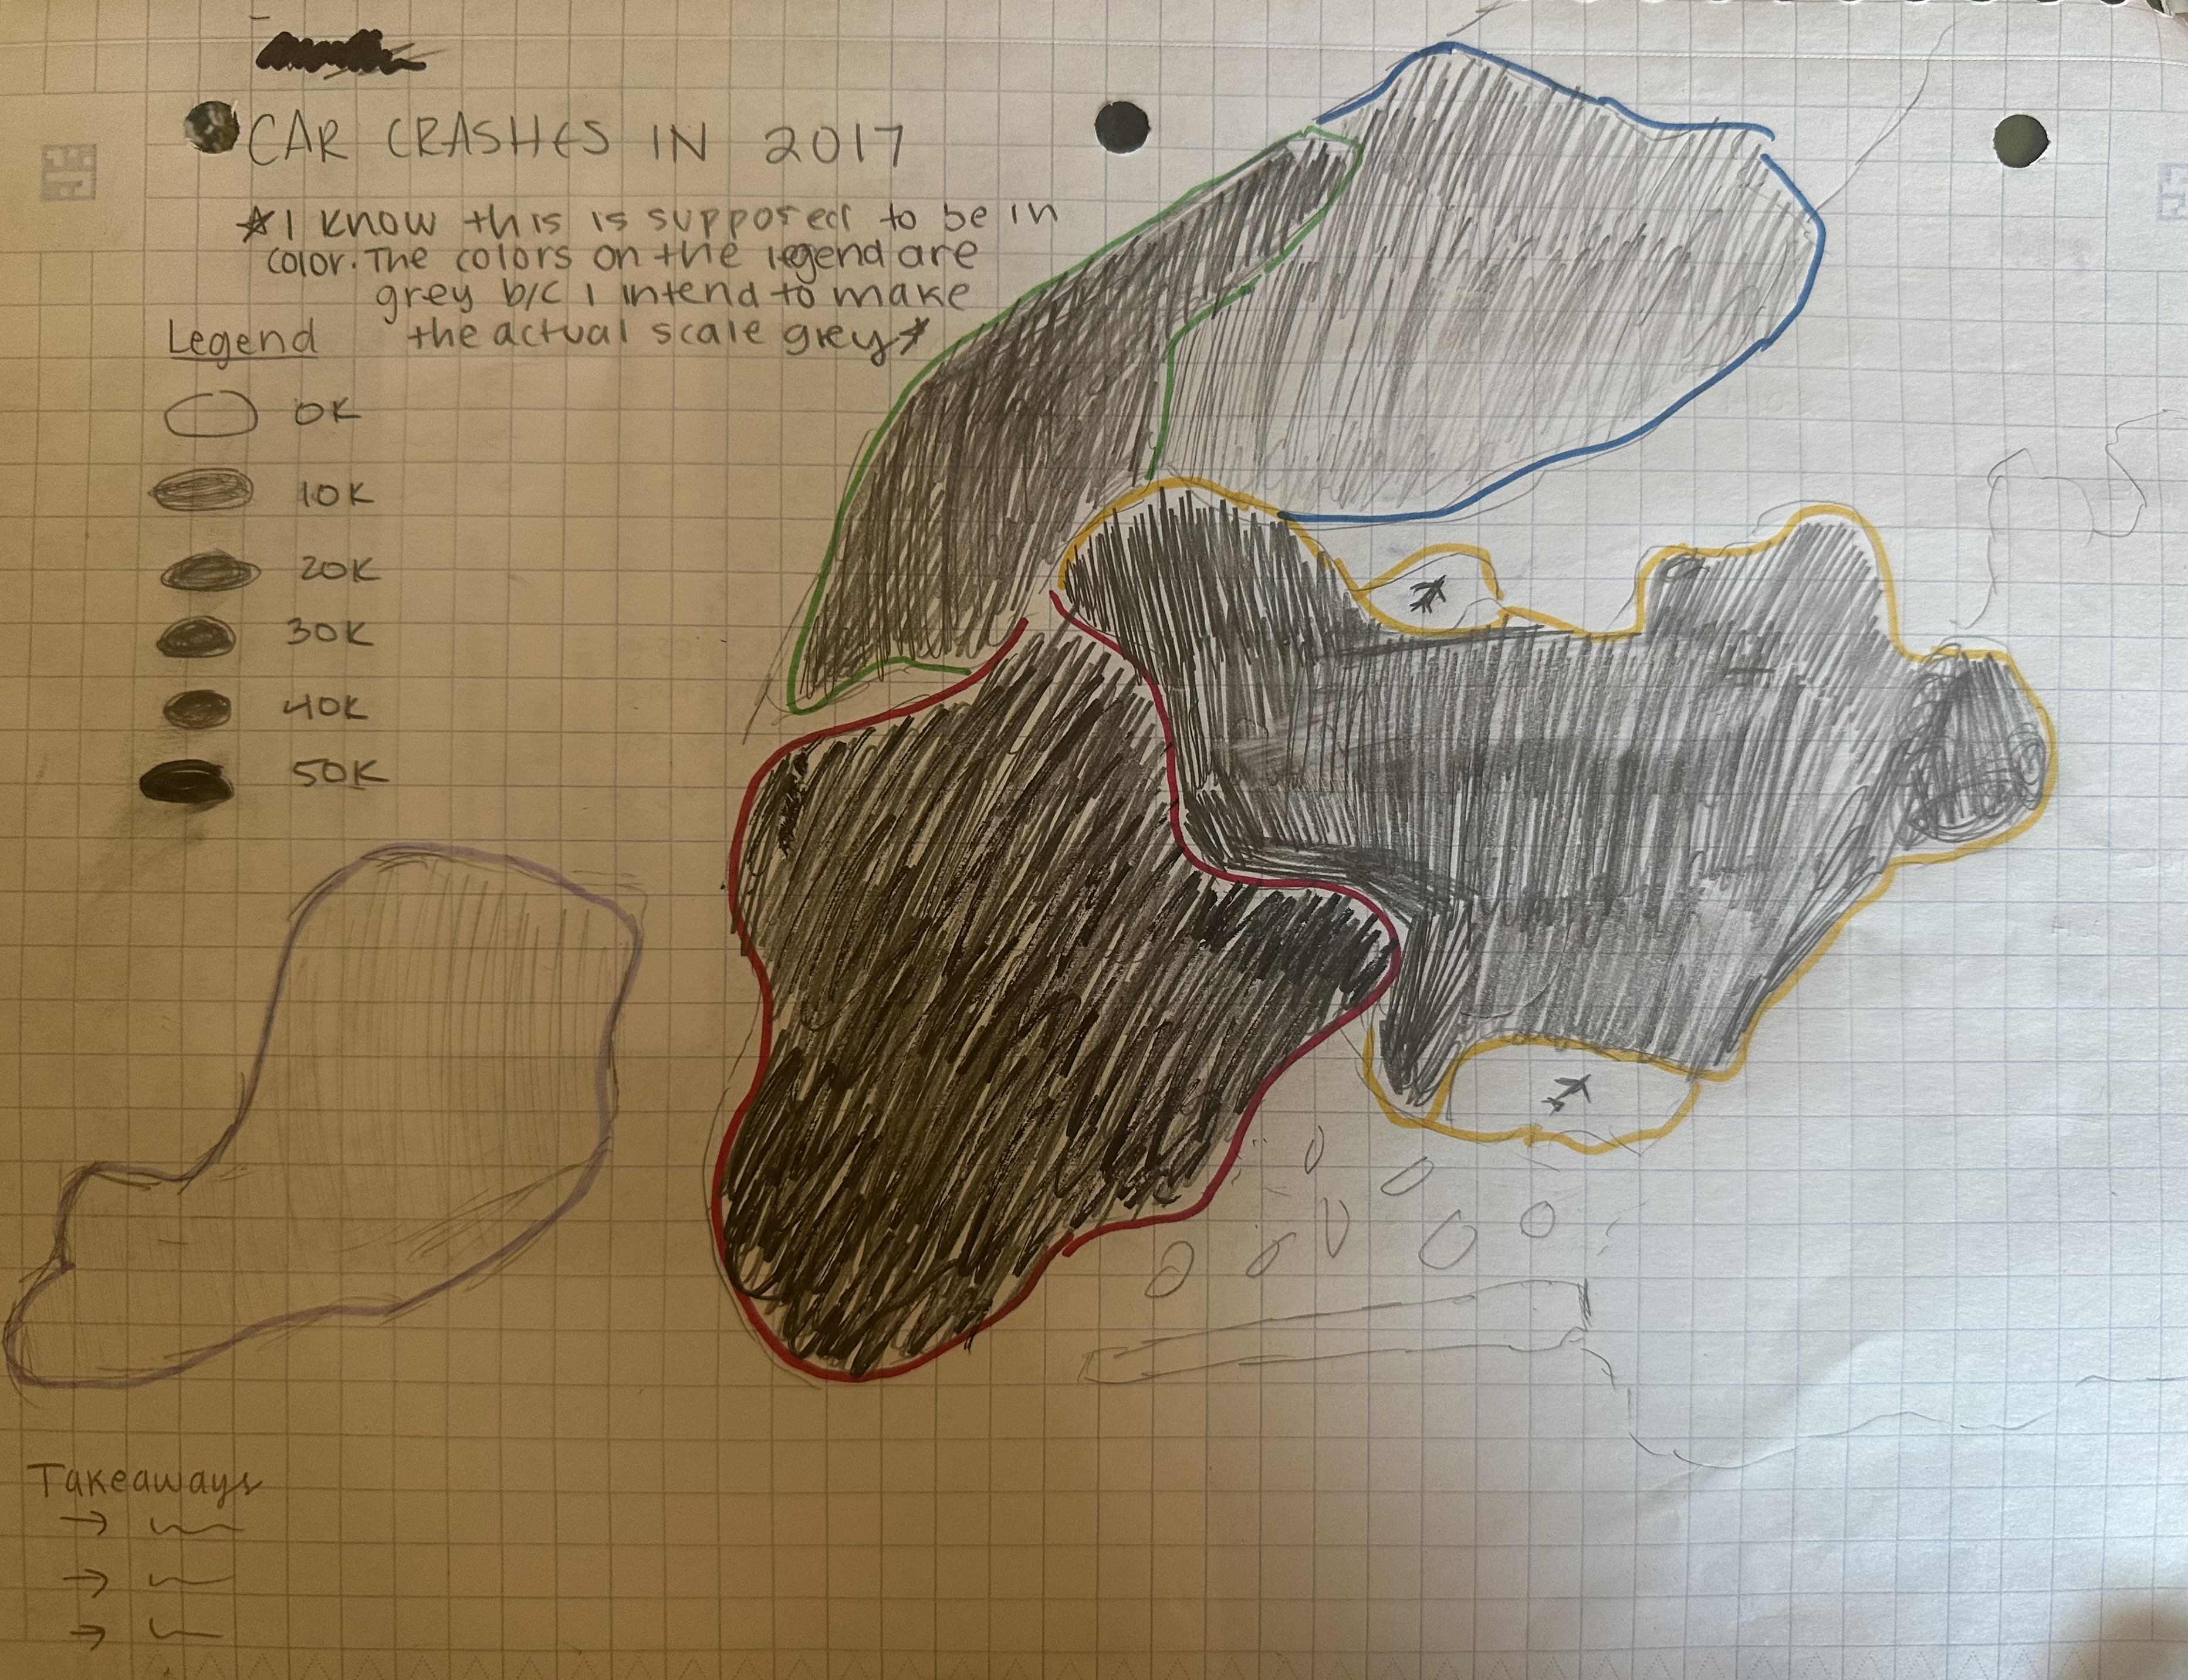 CAR CRASHES IN 2017
*I know this is supposed to be in
color. The colors on the legend are
grey b/c I intend to make
the actual scale grey*
Legend
0K
10K
20K
30K
40K
50K
Takeaways
→
→
→